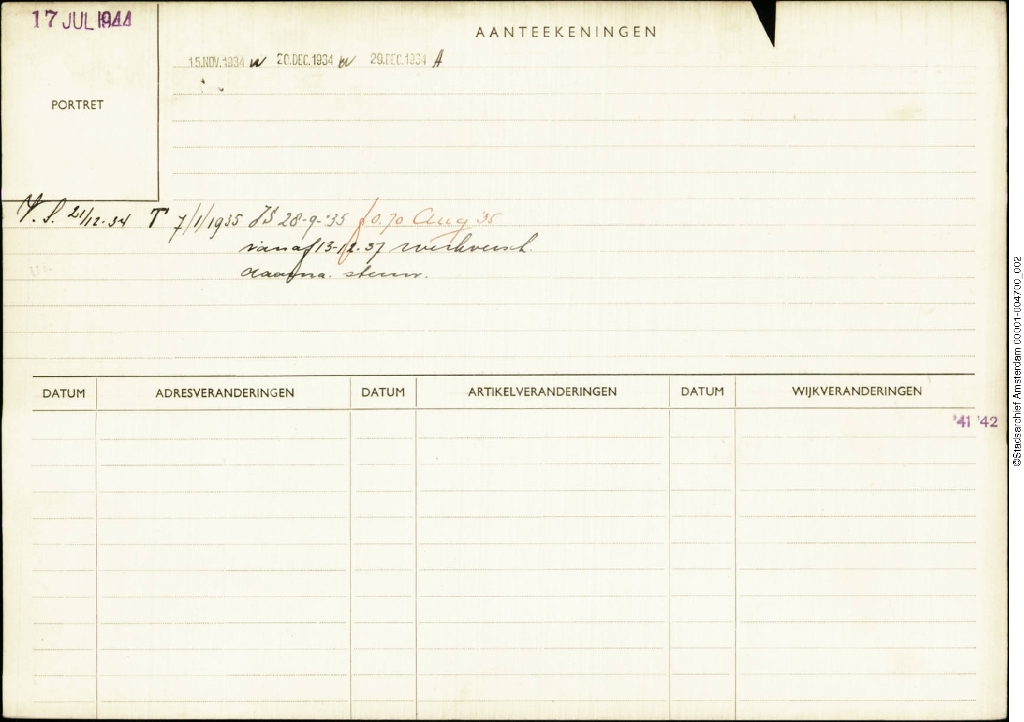 17 JUL 1944
AANTEEKENINGEN
15.NOV.1934 w 20.DEC.1934 w 29.DEC.1934 A
PORTRET
V.S. 21/12-34 T 7/1/1935 28-9-'35 f 0,70 Aug '35
vanaf 13-12-37 werkversch.
daarna steun.
DATUM ADRESVERANDERINGEN DATUM ARTIKELVERANDERINGEN DATUM WIJKVERANDERINGEN
'41 '42
©Stadsarchief Amsterdam 00001-004700_002